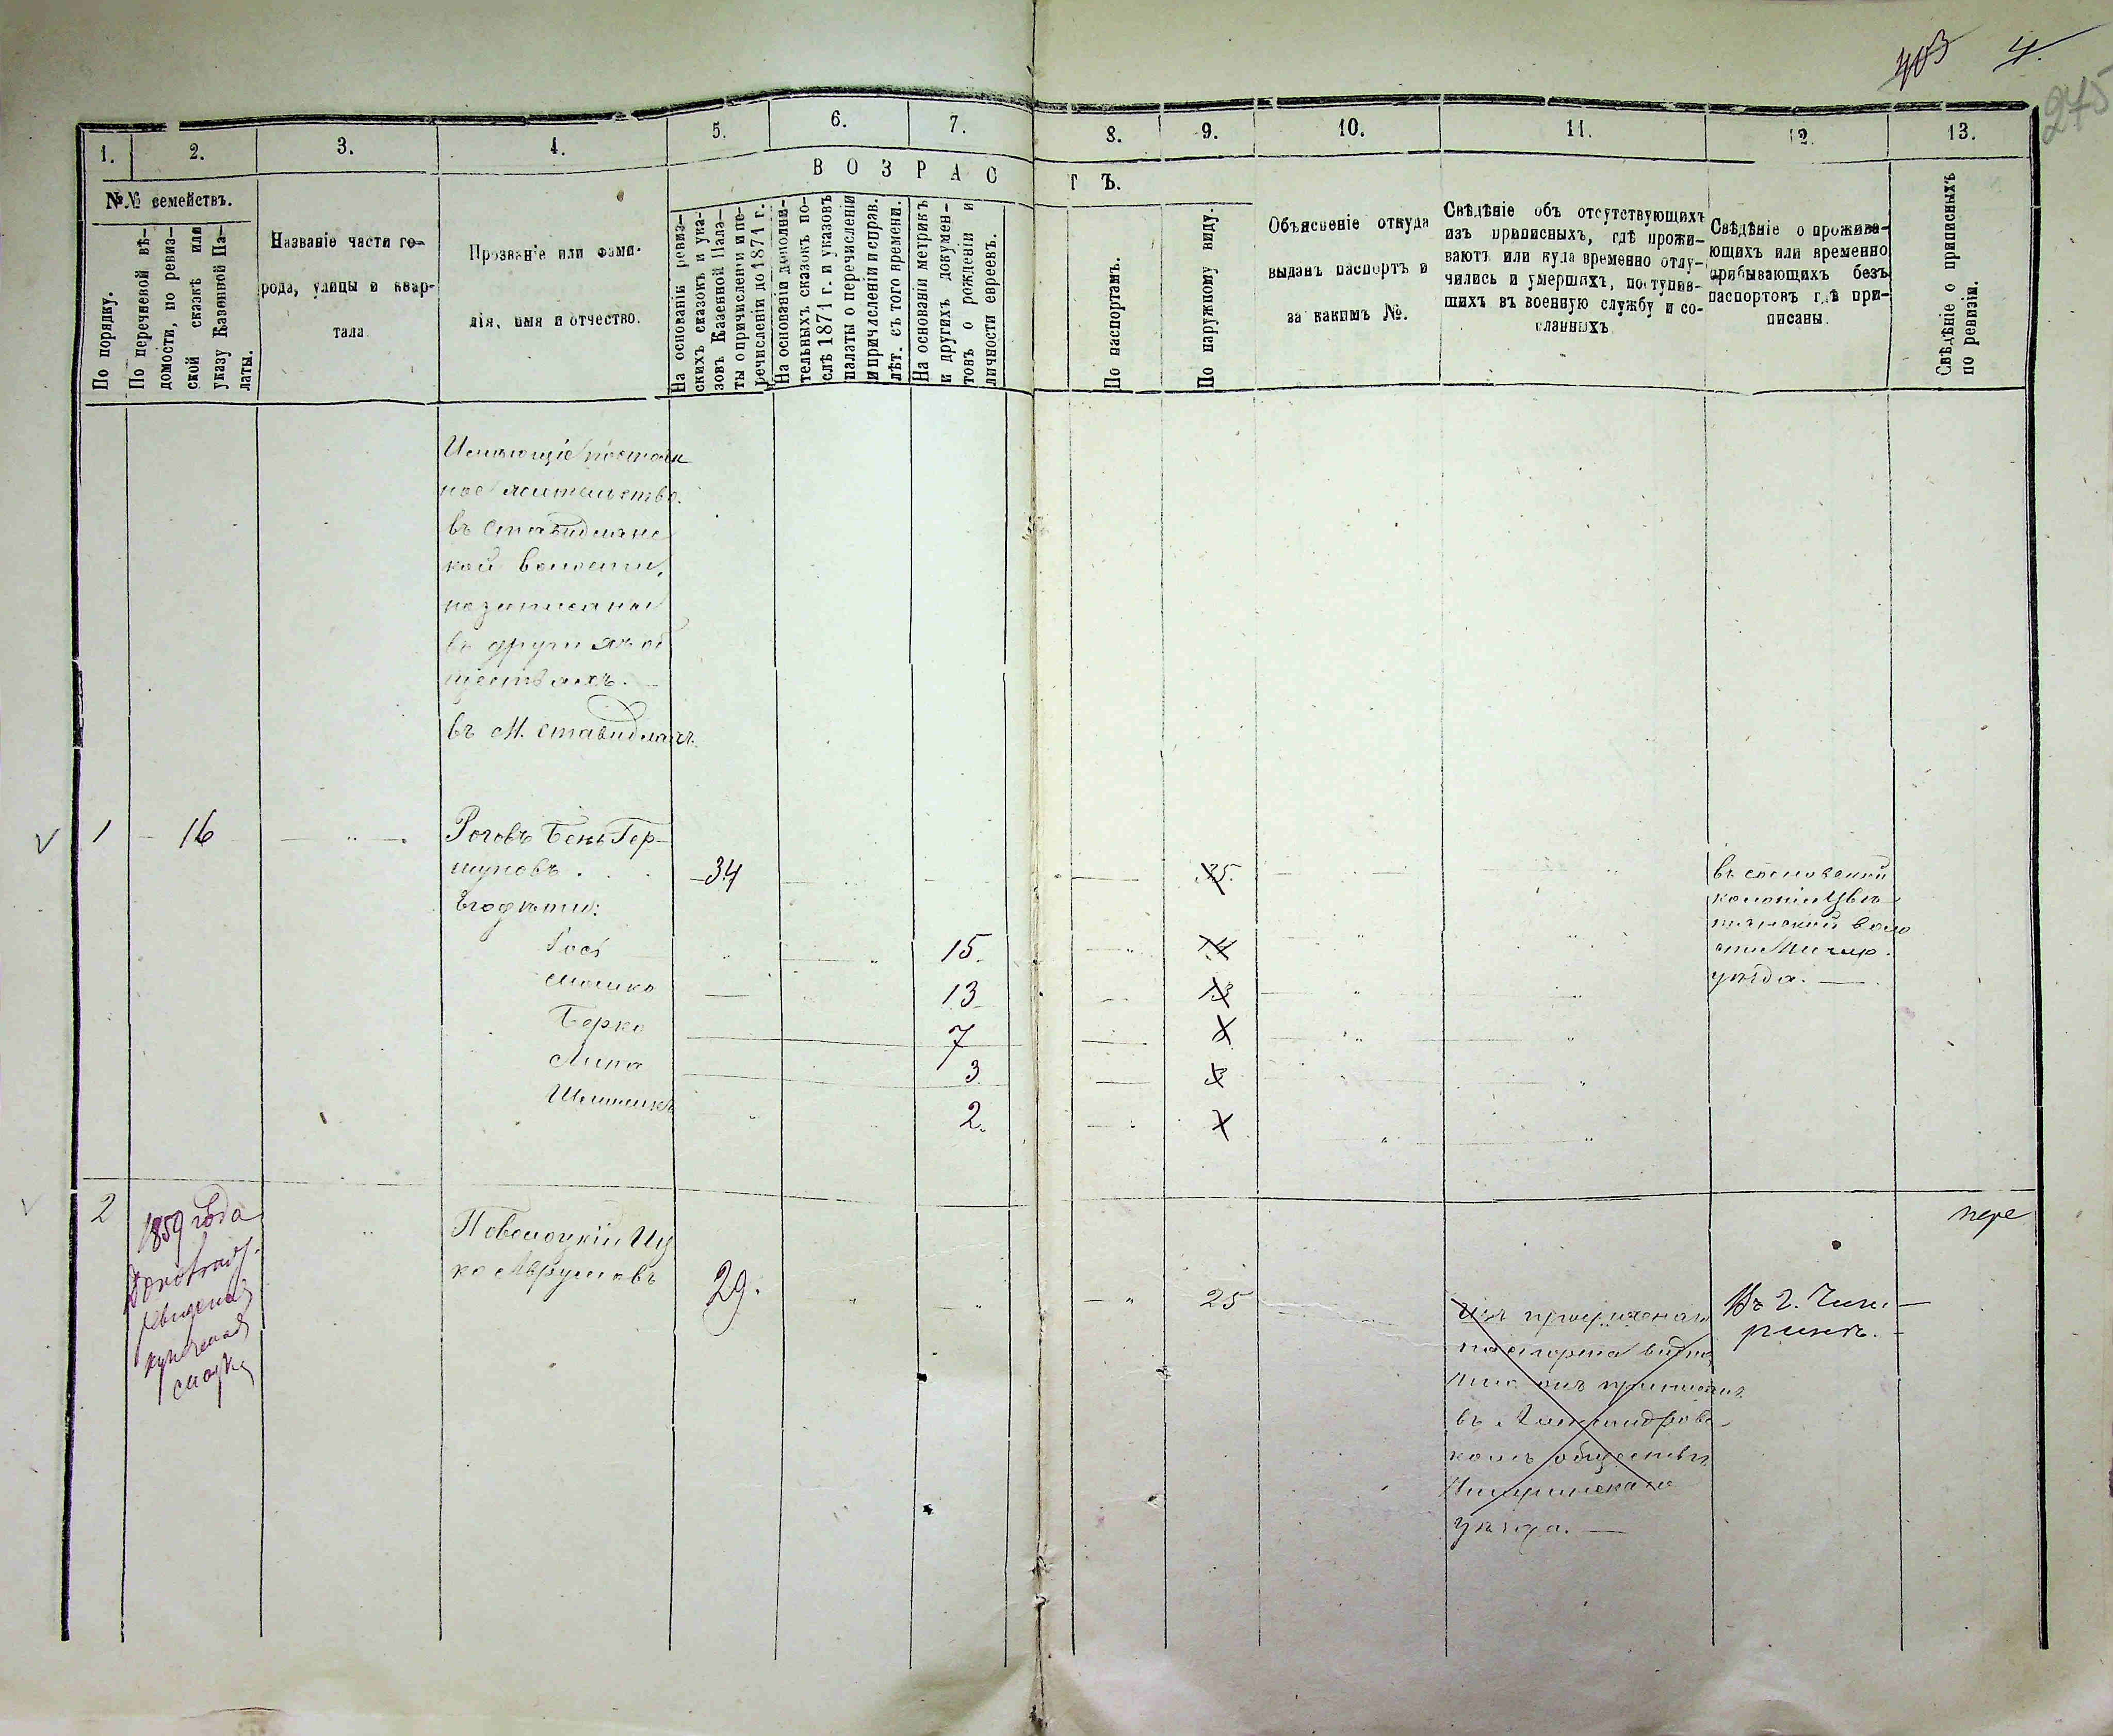 403 4.
275
1. 2. 3. 4. 5. 6. 7. 8. 9. 10. 11. 12. 13.
В О З Р А С Т Ъ.
№№ семействъ.
По порядку.
По перечневой вѣ-
домости, по ревиз-
ской сказкѣ или
указу Казенной Па-
латы.
Названіе части го-
рода, улицы и квар-
тала
Прозваніе или фами-
лія, имя и отчество.
На основаніи ревиз-
скихъ сказокъ и ука-
зовъ Казенной Пала-
ты о причисленіи и пе-
речисленіи до 1874 г.
На основаніи дополни-
тельныхъ сказокъ по-
слѣ 1874 г. и указовъ
палаты о перечисленіи
и причисленіи и справ.
лѣт. съ того времени.
На основаніи метрикъ
и другихъ докумен-
товъ о рожденіи и
личности евреевъ.
По паспортамъ.
По наружному виду.
Объясненіе откуда
выданъ паспортъ и
за какимъ №.
Свѣдѣніе объ отсутствующихъ
изъ приписныхъ, гдѣ прожи-
ваютъ или куда временно отлу-
чились и умершихъ, поступив-
шихъ въ военную службу и со-
сланныхъ
Свѣдѣніе о прожива-
ющихъ или временно
прибывающихъ безъ
паспортовъ гдѣ при-
писаны.
Свѣдѣніе о приписныхъ
по ревизіи.
Имѣющіе постоян
ное жительство
въ Ставидлянс
кой волости,
но записаны
въ другихъ об
ществахъ.
въ М. Ставидлахъ
1 16 Роговъ Бень Гер-
шуновъ . . . 34 35.
Его дѣти:
15
Мошко 13 13
Берко 7
Липа 3 3
2.
въ
колоніи
вол
ости Чигир.
уѣзда.
2 1859 года
сказка
Поволоцкій Иц
ко Аврумовъ 29. 25
Изъ
паспорта видно
что онъ приписанъ
въ Александровс
комъ обществѣ
Чигиринскаго
уѣзда.
Въ г. Чиги-
ринѣ.
пере